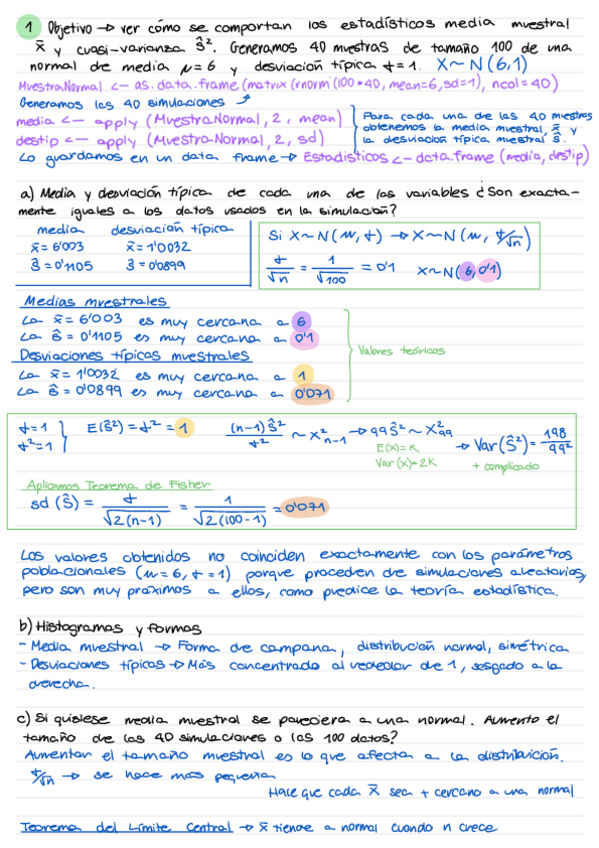 1 Objetivo → ver cómo se comportan los estadísticos media muestral
x̄ y cuasi-varianza Ŝ². Generamos 40 muestras de tamaño 100 de una
normal de media μ=6 y desviación típica σ=1. X~N(6,1)
MuestraNormal <- as.data.frame(matrix(rnorm(100*40, mean=6,sd=1), ncol=40)
Generamos las 40 simulaciones
media <- apply (MuestraNormal, 2, mean)
destip <- apply (MuestraNormal, 2, sd)
Para cada una de las 40 muestras
obtenemos la media muestral, x̄ y
la desviación típica muestral ŝ.
Lo guardamos en un data frame → Estadisticos <- data.frame (media, destip)
a) Media y desviación típica de cada una de las variables ¿Son exacta-
mente iguales a los datos usados en la simulación?
media desviación típica
x̄ = 6'003 x̄ = 1'0032
ŝ = 0'1105 ŝ = 0'0899
Si X~N(μ, σ) → X~N(μ, σ/√n)
σ/√n = 1/√100 = 0'1 X~N(6,0'1)
Medias muestrales
La x̄ = 6'003 es muy cercana a 6
La ŝ = 0'1105 es muy cercana a 0'1
Desviaciones típicas muestrales
La x̄ = 1'0032 es muy cercana a 1
La ŝ = 0'0899 es muy cercana a 0'071
Valores teóricos
σ=1
σ²=1
E(Ŝ²) = σ² = 1
(n-1)Ŝ²/σ² ~ X²n-1 → 99Ŝ² ~ X²99
E(X)=K
Var(X)=2K
→ Var(Ŝ²) = 198/99²
+ complicado
Aplicamos Teorema de Fisher
sd (Ŝ) = σ/√2(n-1) = 1/√2(100-1) = 0'071
Los valores obtenidos no coinciden exactamente con los parámetros
poblacionales (μ=6, σ=1) porque proceden de simulaciones aleatorias,
pero son muy próximos a ellos, como predice la teoría estadística.
b) Histogramas y formas
- Media muestral → Forma de campana, distribución normal, simétrica
- Desviaciones típicas → Más concentrada al rededor de 1, sesgado a la
derecha.
c) Si quisiese media muestral se pareciera a una normal. Aumento el
tamaño de las 40 simulaciones o los 100 datos?
Aumentar el tamaño muestral es lo que afecta a la distribución.
σ/√n → se hace más pequeña
Hace que cada x̄ sea + cercano a una normal
Teorema del Límite Central → x̄ tiende a normal cuando n crece